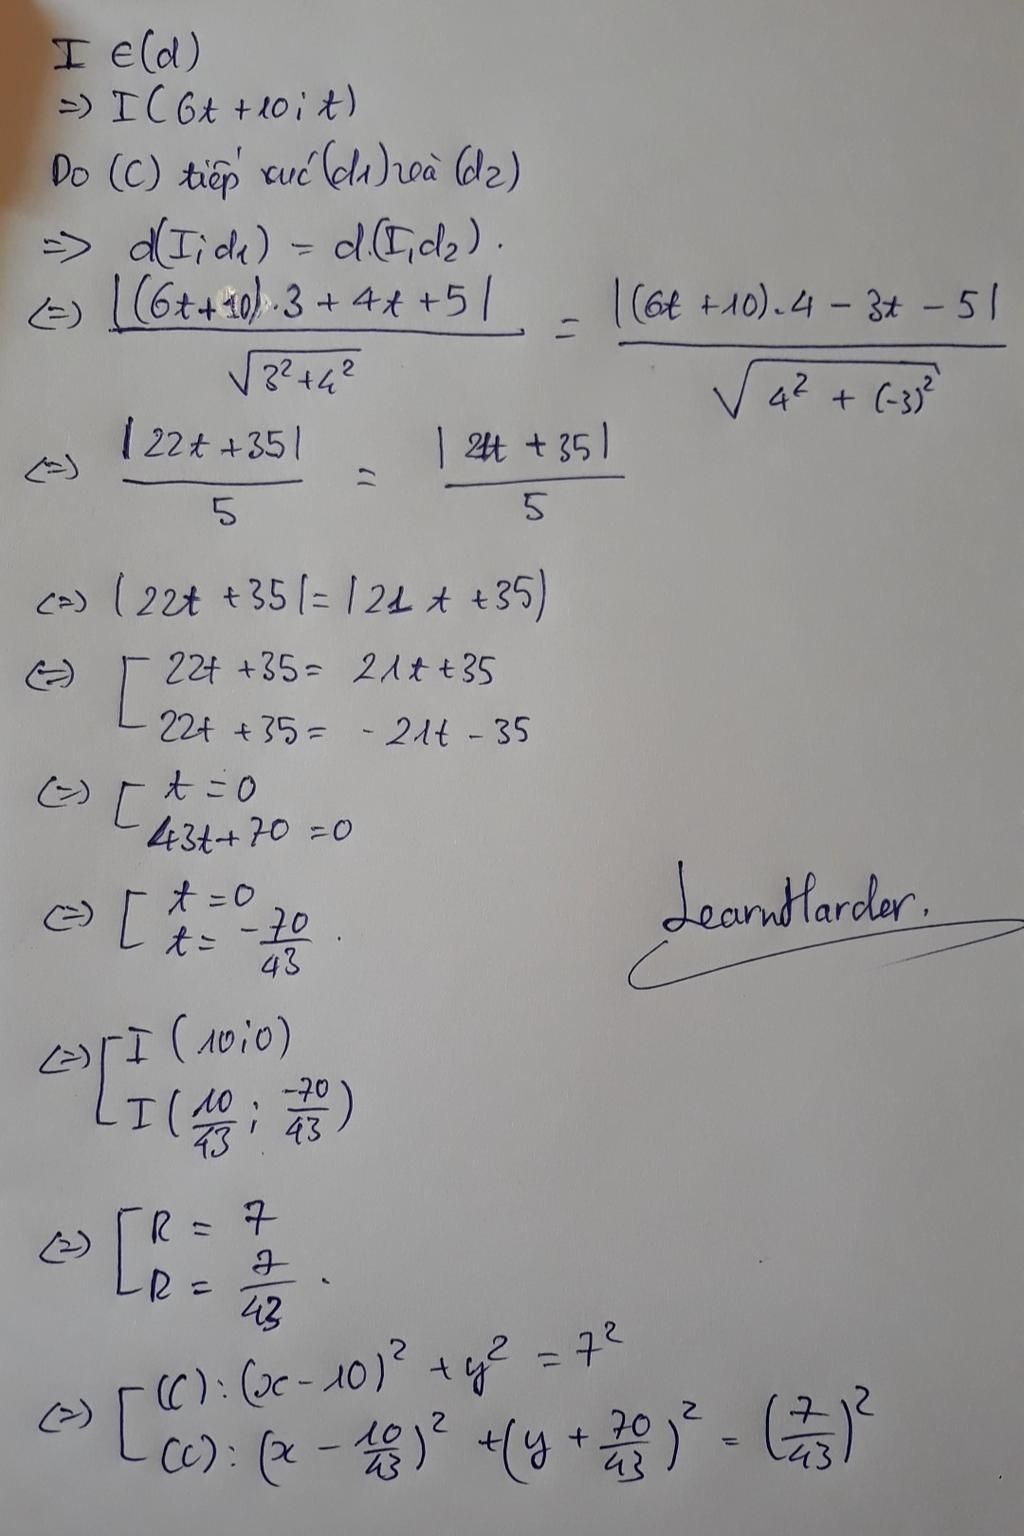 I ∈(d)
=> I(6t+10;t)
Do (C) tiếp xúc (d1) và (d2)
=> d(I;d1) = d.(I,d2).
<=> |(6t+10).3+4t+5| / √3²+4² = |(6t+10).4-3t-5| / √4²+(-3)²
<=> |22t+35| / 5 = |21t+35| / 5
<=> |22t+35|=|21t+35|
<=> [ 22t+35= 21t+35
22t+35= -21t-35
<=> [ t=0
43t+70=0
<=> [ t=0
t= -70/43.
LearnHarder.
<=> [ I(10;0)
I(10/43; -70/43)
<=> [ R = 7
R = 7/43.
<=> [ (C): (x-10)² + y² = 7²
(C): (x - 10/43)² + (y + 70/43)² = (7/43)²